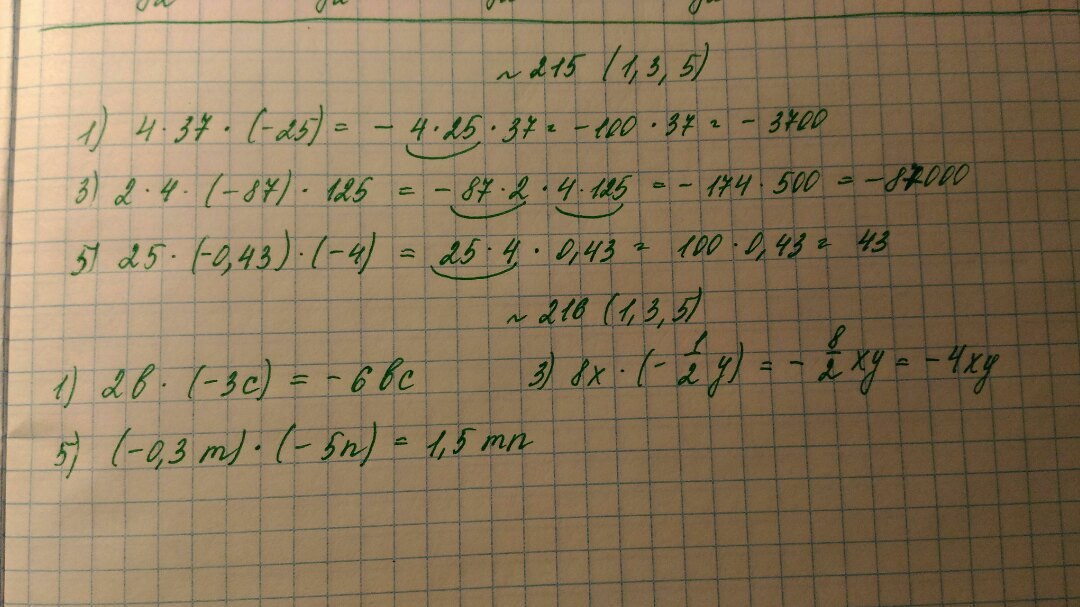 ~ 215 (1, 3, 5)
1) 4 · 37 · (-25) = - 4 · 25 · 37 = -100 · 37 = - 3700
3) 2 · 4 · (-87) · 125 = - 87 · 2 · 4 · 125 = - 174 · 500 = -87000
5) 25 · (-0,43) · (-4) = 25 · 4 · 0,43 = 100 · 0,43 = 43
~ 216 (1, 3, 5)
1) 2в · (-3с) = -6вс 3) 8x · (- 1/2 y) = - 8/2 xy = -4xy
5) (-0,3m) · (-5n) = 1,5mn